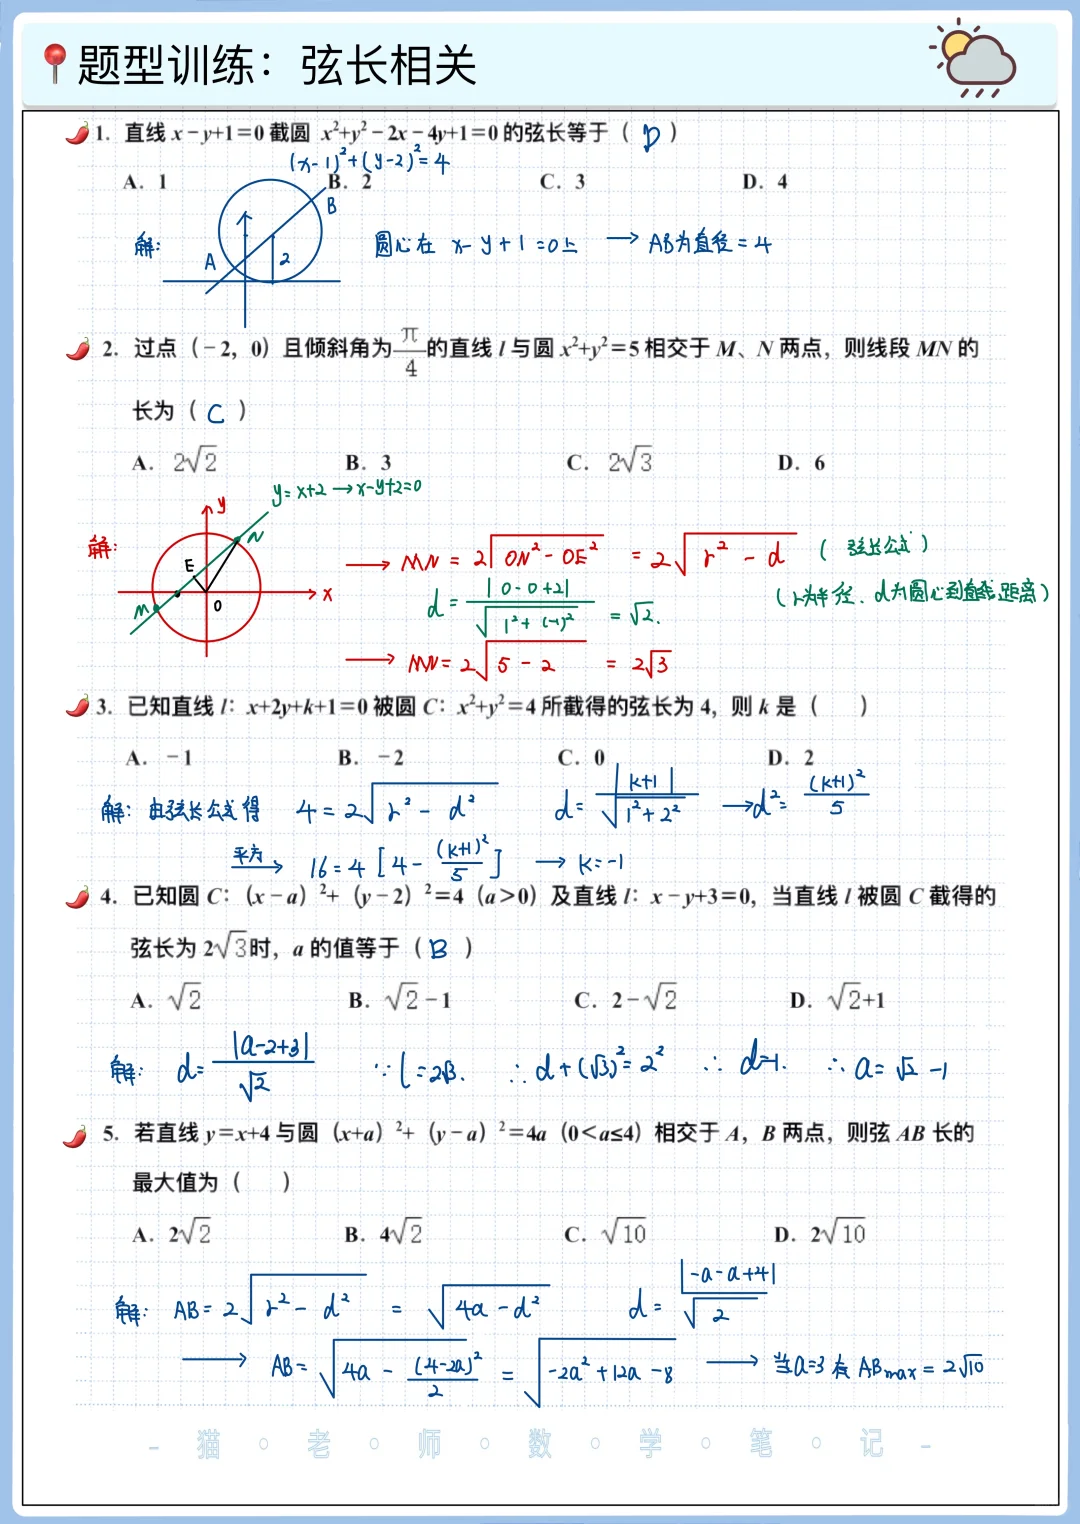 题型训练：弦长相关
1. 直线 x－y+1＝0 截圆 x²+y²－2x－4y+1＝0 的弦长等于（ D ）
(x-1)²+(y-2)²=4
A. 1 B. 2 C. 3 D. 4
解: A B 2 圆心在 x-y+1=0上 → AB为直径=4
2. 过点（－2，0）且倾斜角为 π/4 的直线 l 与圆 x²+y²＝5 相交于 M、N 两点，则线段 MN 的
长为（ C ）
A. 2√2 B. 3 C. 2√3 D. 6
y=x+2 → x-y+2=0
解: y N E M O x
→ MN = 2√(ON²-OE²) = 2√(r²-d) (弦长公式)
d = |0-0+2|/√(1²+(-1)²) = √2. (r为半径、d为圆心到直线距离)
→ MN = 2√(5-2) = 2√3
3. 已知直线 l：x+2y+k+1＝0 被圆 C：x²+y²＝4 所截得的弦长为 4，则 k 是（ ）
A. －1 B. －2 C. 0 D. 2
解: 由弦长公式得 4=2√(r²-d²) d=|k+1|/√(1²+2²) → d²=(k+1)²/5
平方→ 16=4[4-(k+1)²/5] → k=-1
4. 已知圆 C：（x－a）²+（y－2）²＝4（a＞0）及直线 l：x－y+3＝0，当直线 l 被圆 C 截得的
弦长为 2√3时，a 的值等于（ B ）
A. √2 B. √2－1 C. 2－√2 D. √2+1
解: d=|a-2+3|/√2 ∵ l=2√3. ∴ d+(√3)²=2² ∴ d=1. ∴ a=√2-1
5. 若直线 y＝x+4 与圆（x+a）²+（y－a）²＝4a（0＜a≤4）相交于 A，B 两点，则弦 AB 长的
最大值为（ ）
A. 2√2 B. 4√2 C. √10 D. 2√10
解: AB=2√(r²-d²) = √(4a-d²) d=|-a-a+4|/√2
→ AB=√(4a-(4-2a)²/2) = √(-2a²+12a-8) → 当a=3有ABmax=2√10
- 猫 · 老 · 师 · 数 · 学 · 笔 · 记 -